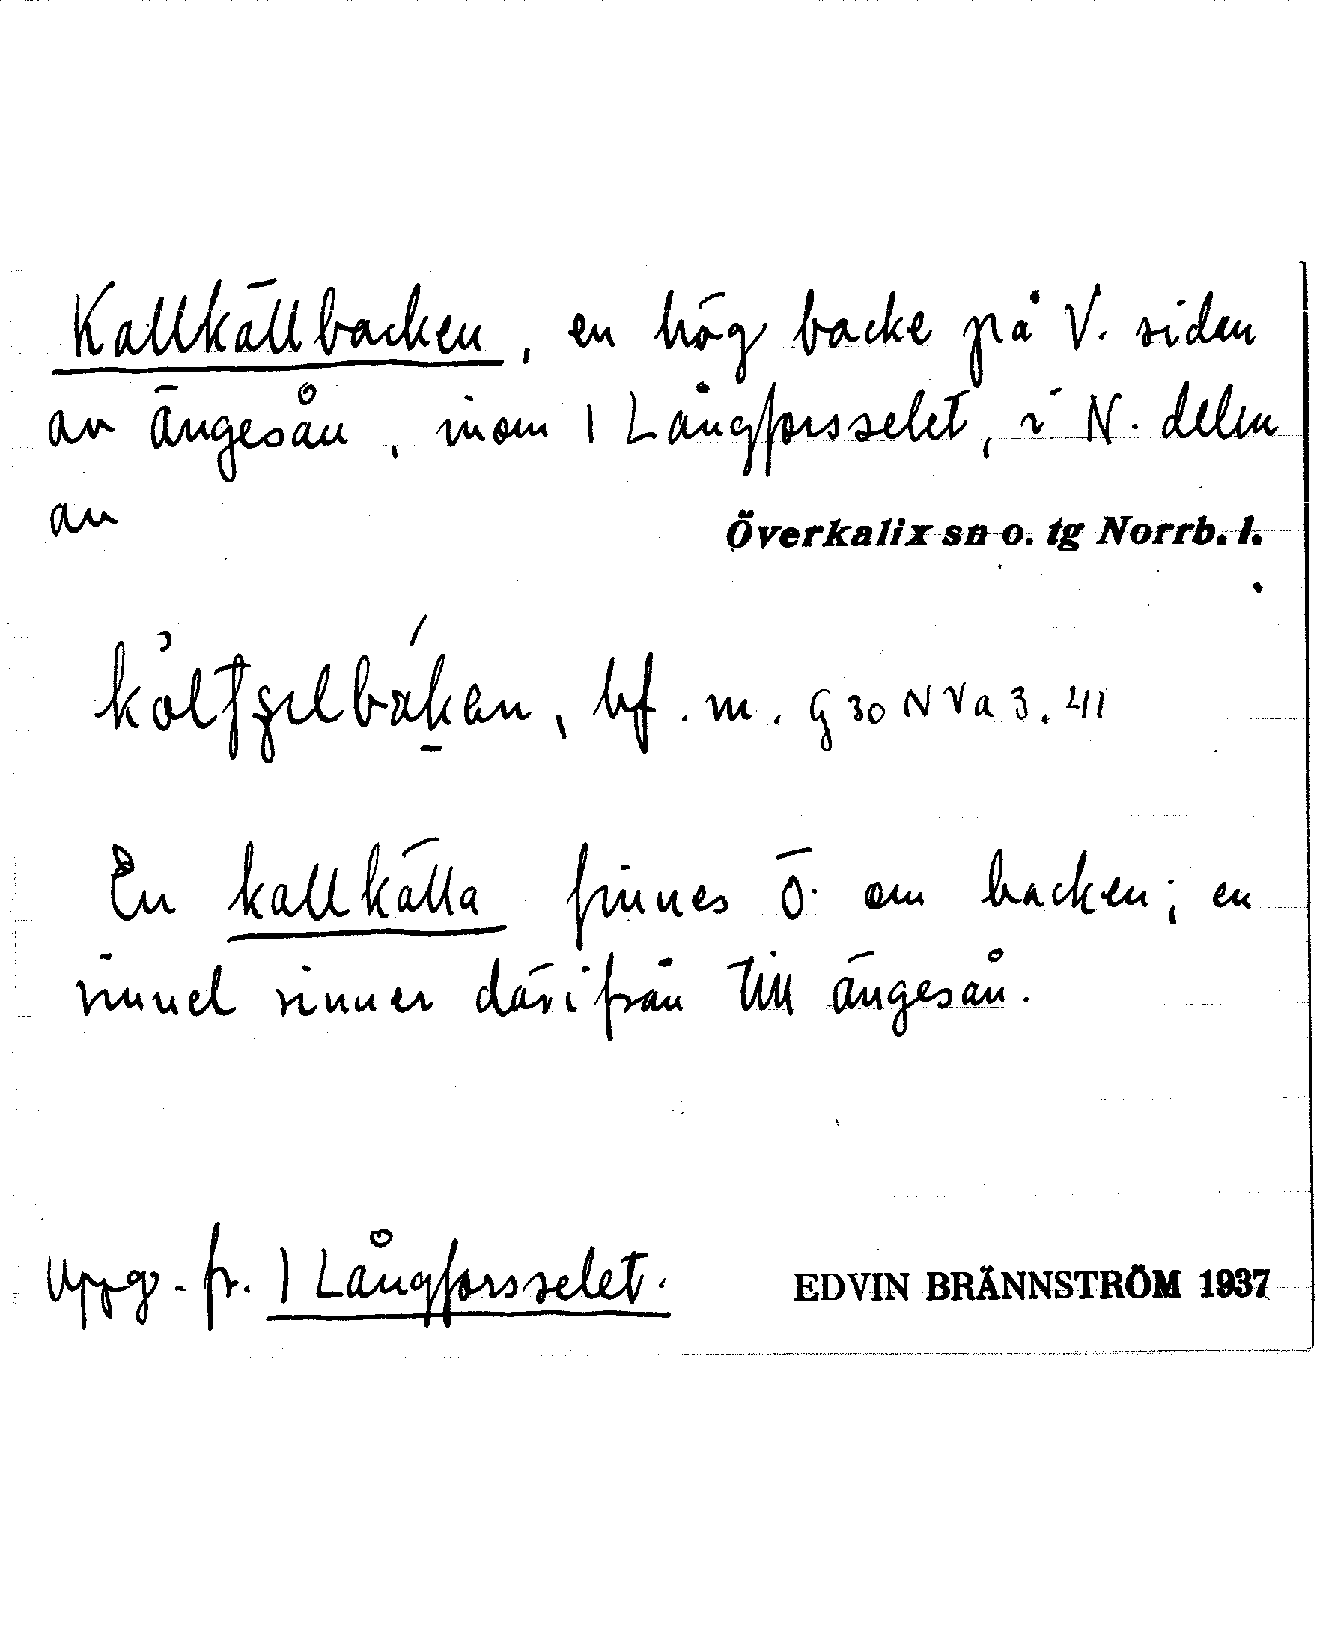 Kallkällbacken, en hög backe på V. sidan
av ängesån, inom 1 Långforsselet, i N. delen
av
Överkalix sn o. tg Norrb. l.
bf. m. G 30 NVa 3. 41
En kallkälla finnes Ö. om backen; en
rinnel rinner därifrån till ängesån.
Uppg. fr. 1 Långforsselet.
EDVIN BRÄNNSTRÖM 1937